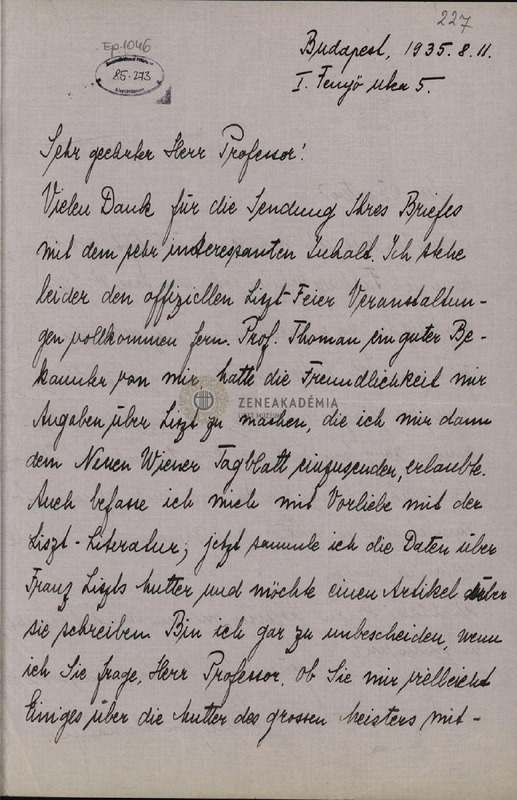 227
Ep. 1046
85-273
Budapest, 1935. 8. 11.
I. Fenyö utca 5.
Sehr geehrter Herr Professor!
Vielen Dank für die Sendung Ihres Briefes
mit dem sehr interessanten Inhalt. Ich stehe
leider den offiziellen Liszt-Feier Veranstaltun-
gen vollkommen fern. Prof. Thoman ein guter Be-
kannter von mir, hatte die Freundlichkeit mir
ZENEAKADÉMIA
Angaben über Liszt zu machen, die ich mir dann
dem Neuen Wiener Tagblatt einzusenden, erlaubte.
Auch befasse ich mich mit Vorliebe mit der
Liszt-Literatur; jetzt sammle ich die Daten über
Franz Liszts Mutter und möchte einen Artikel über
sie schreiben. Bin ich gar zu unbescheiden, wenn
ich Sie frage, Herr Professor, ob Sie mir vielleicht
Einiges über die Mutter des grossen Meisters mit-